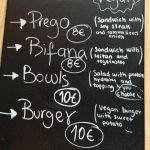 Vegan
→ Prego 8€
(Sandwich with soy steaks and caramelised onion)
→ Bifana 8€
(Sandwich with seitan and vegetables)
→ Bowls 10€
Salad with protein hydrates and topping you choose
→ Burger 10€
(Vegan burger with sweet potato